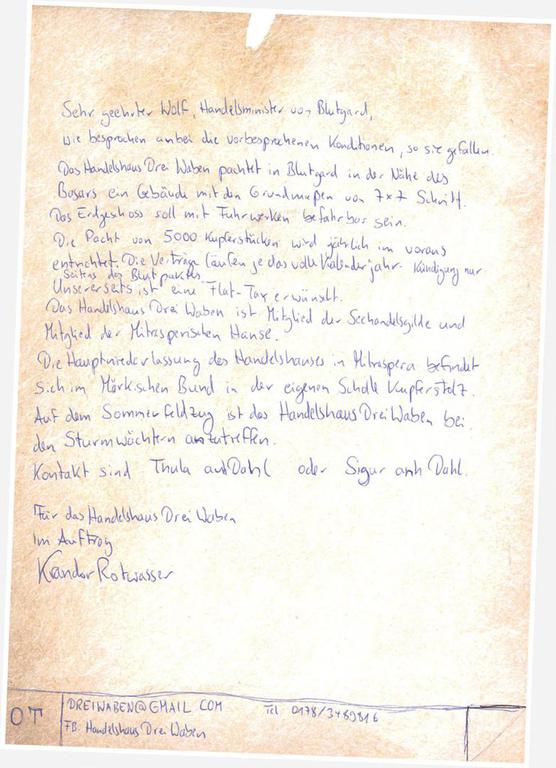 Sehr geehrter Wolf, Handelsminister von Blutgard,
wie besprochen anbei die vorbesprochenen Konditionen, so sie gefallen.
Das Handelshaus Drei Waben pachtet in Blutgard in der Nähe des
Basars ein Gebäude mit den Grundmaßen von 7x7 Schritt.
Das Erdgeschoss soll mit Fuhrwerken befahrbar sein.
Die Pacht von 5000 Kupferstücken wird jährlich im voraus
entrichtet. Die Verträge laufen je das volle Kalenderjahr. Kündigung nur
seitens des Blutpaktes
Unsererseits ist eine Flat-Tax erwünscht.
Das Handelshaus Drei Waben ist Mitglied der Seehandelsgilde und
Mitglied der Mitrasperischen Hanse.
Die Hauptniederlassung des Handelshauses in Mitraspera befindet
sich im Märkischen Bund in der eigenen Scholle Kupferstolz.
Auf dem Sommerfeldzug ist das Handelshaus Drei Waben bei
den Sturmwächtern anzutreffen.
Kontakt sind Thula anh Dahl oder Sigur anh Dahl.
Für das Handelshaus Drei Waben
im Auftrag
Krandor Rotwasser
OT
DREIWABEN@GMAIL.COM Tel 0178/3489816
FB: Handelshaus Drei Waben